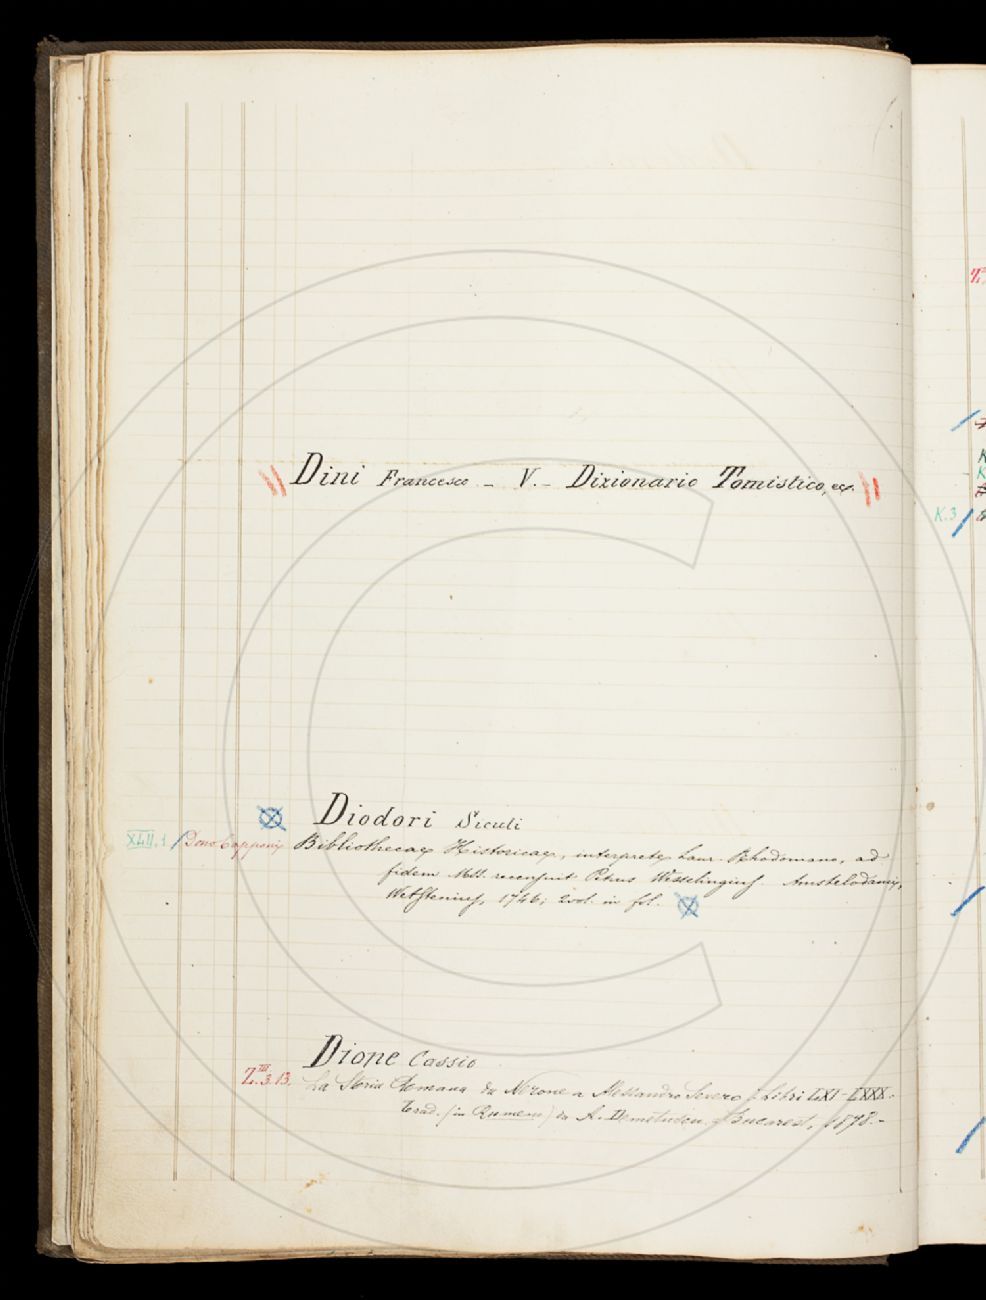 Dini Francesco - V. - Dizionario Tomistico, ecc.
Diodori Siculi
XLII.1 Dono Capponi Bibliothecae Historicae, interprete Laur. Rhodomano, ad
fidem Mss. recensuit Petrus Wesselingius. Amstelodami,
Wetstenius, 1746; 2 vol. in fol.
Dione Cassio
Z.III.3.13. La Storia Romana da Nerone a Alessandro Severo. Libri LXI-LXXX.
Trad. (in Rumeno) da A. Demetrescu. Bucarest, 1878.-
K.3